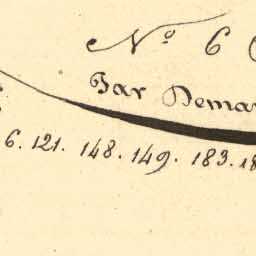 No 6
Par Demar
6. 121. 148. 149. 183. 18